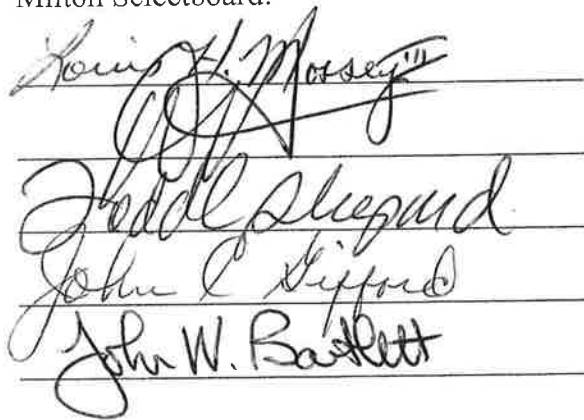 Milton Selectboard:
Louis H. Mossey III
Todd C Shepard
John C Gifford
John W. Bartlett